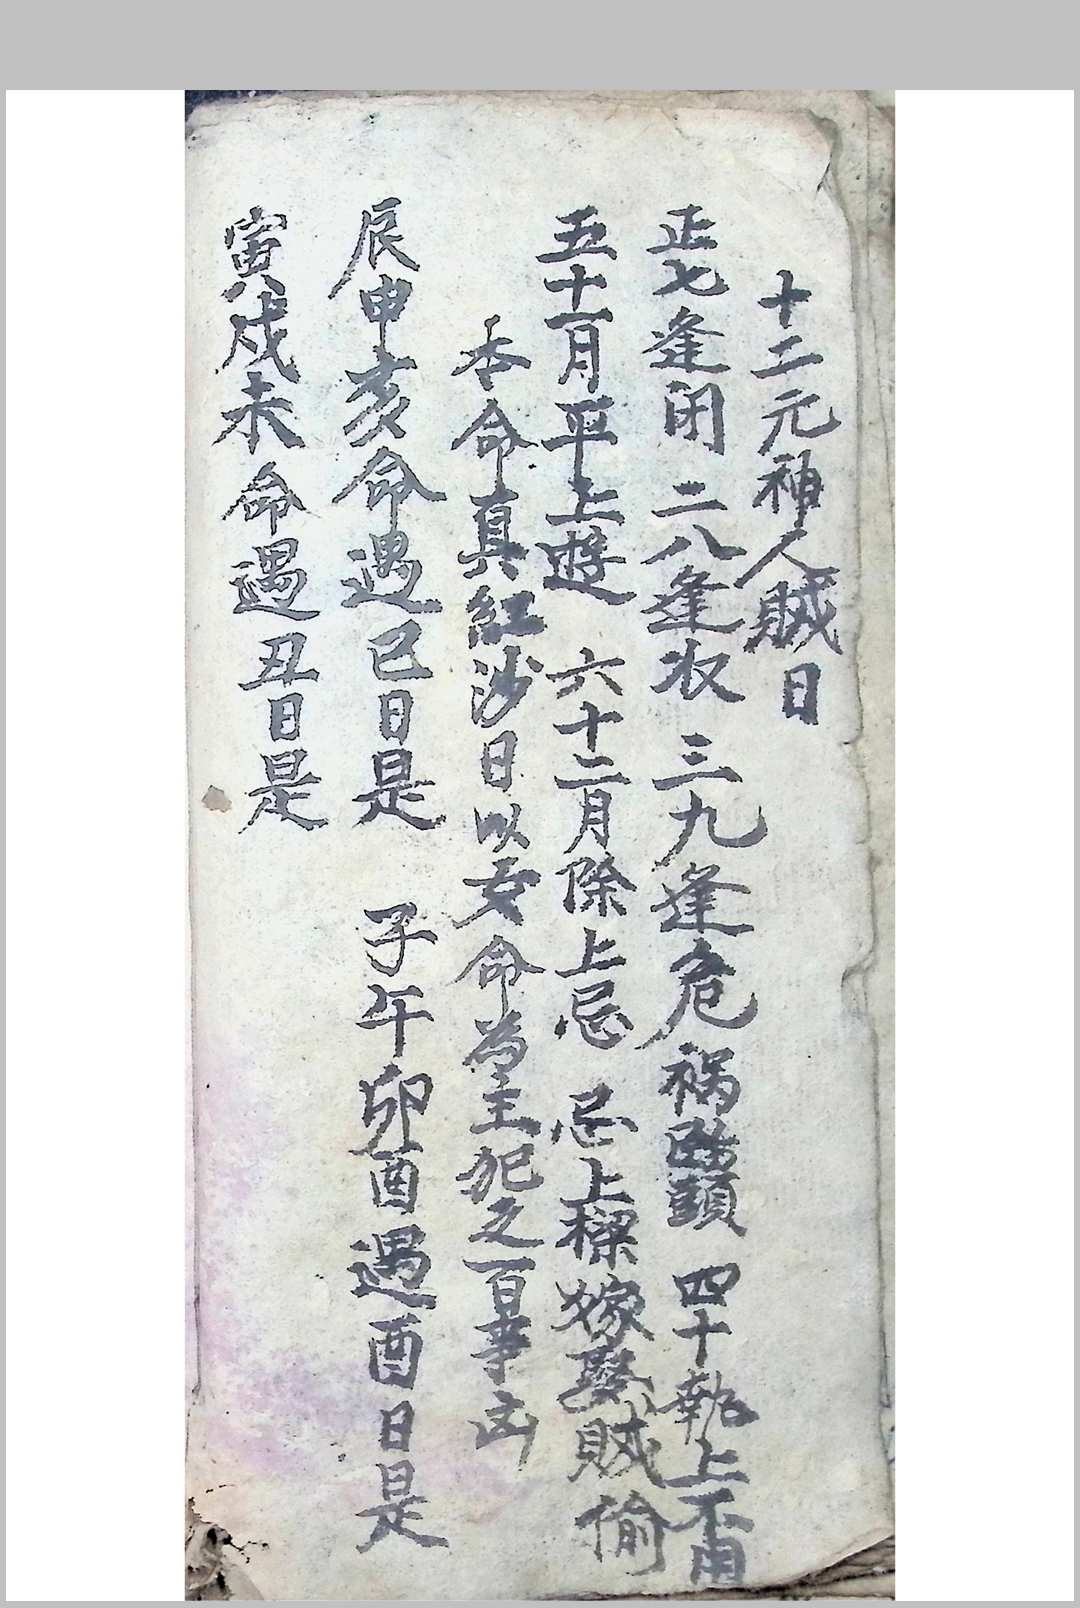 十二元神人賊日
正七逢闭 二八逢收 三九逢危禍 頭 四十執上不用
五十一月平上 六十二月除上忌 忌上樑嫁娶賊偷
本命真紅沙日以女命為主犯之百事凶
辰申亥命遇巳日是 子午卯酉遇酉日是
寅戌未命遇丑日是